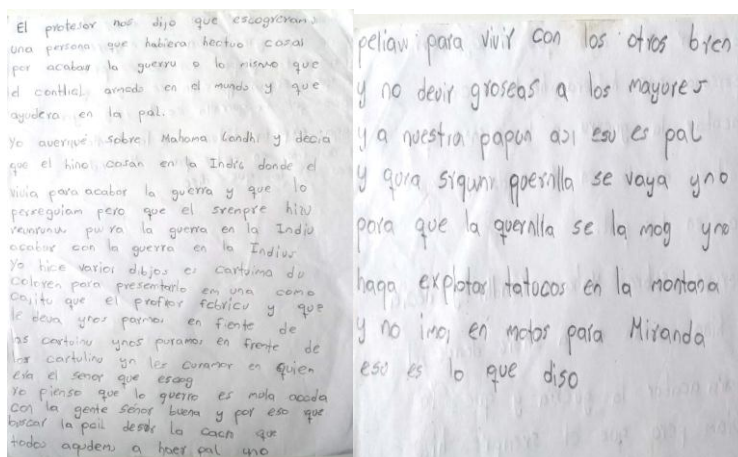 El profesor nos dijo que escogieramos
una persona que hubiera hectuo cosas
por acabar la guerru o lo mismo que
el conflict armado en el mundo y que
ayudera en la pal.
Yo averigué sobre Mahoma Gandhi y decia
que el hino cosan en la India donde el
vivia para acabar la guerra y que lo
perreguian pero que el srempre hizu
reunronus pura la guerra en la Indiu
acabar con la guerra en la Indius
Yo hice varios dibjos es cartuima du
coloren para presentarlo em una como
cajitu que el profros febricu y que
le deva ynos parmos en fiente de
las cartoinu ynos puramos en frente de
los cartulinu yn les curamor en quien
era el senor que escog
Yo pienso que lo guerro es mala acada
con la gente señor buena y por eso que
buscar la pail desde la cacn que
todos aqudens a haer pal uno
peliaw para vivir con los otros bien
y no devir groseas a los mayores
y a nuestra papun asi eso es pal
y qura siquni guernlla se vaya yno
para que la quernlla se la mog yno
haga explotar tatucos en la montana
y no imos en motos para Miranda
eso es lo que diso